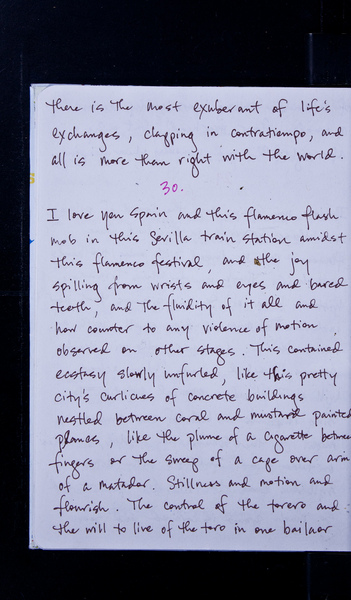 there is the most exuberant of life's
exchanges, clapping in contratiempo, and
all is more than right with the world.
30.
I love you Spain and this flamenco flash
mob in this Sevilla train station amidst
this flamenco festival, and the joy
spilling from wrists and eyes and bared
teeth, and the fluidity of it all and
how counter to any violence of motion
observed on other stages. This contained
ecstasy slowly unfurled, like this pretty
city's curlicues of concrete buildings
nestled between coral and mustard painted
planes, like the plume of a cigarette between
fingers or the sweep of a cape over arm
of a matador. Stillness and motion and
flourish. The control of the torero and
the will to live of the toro in one bailaor